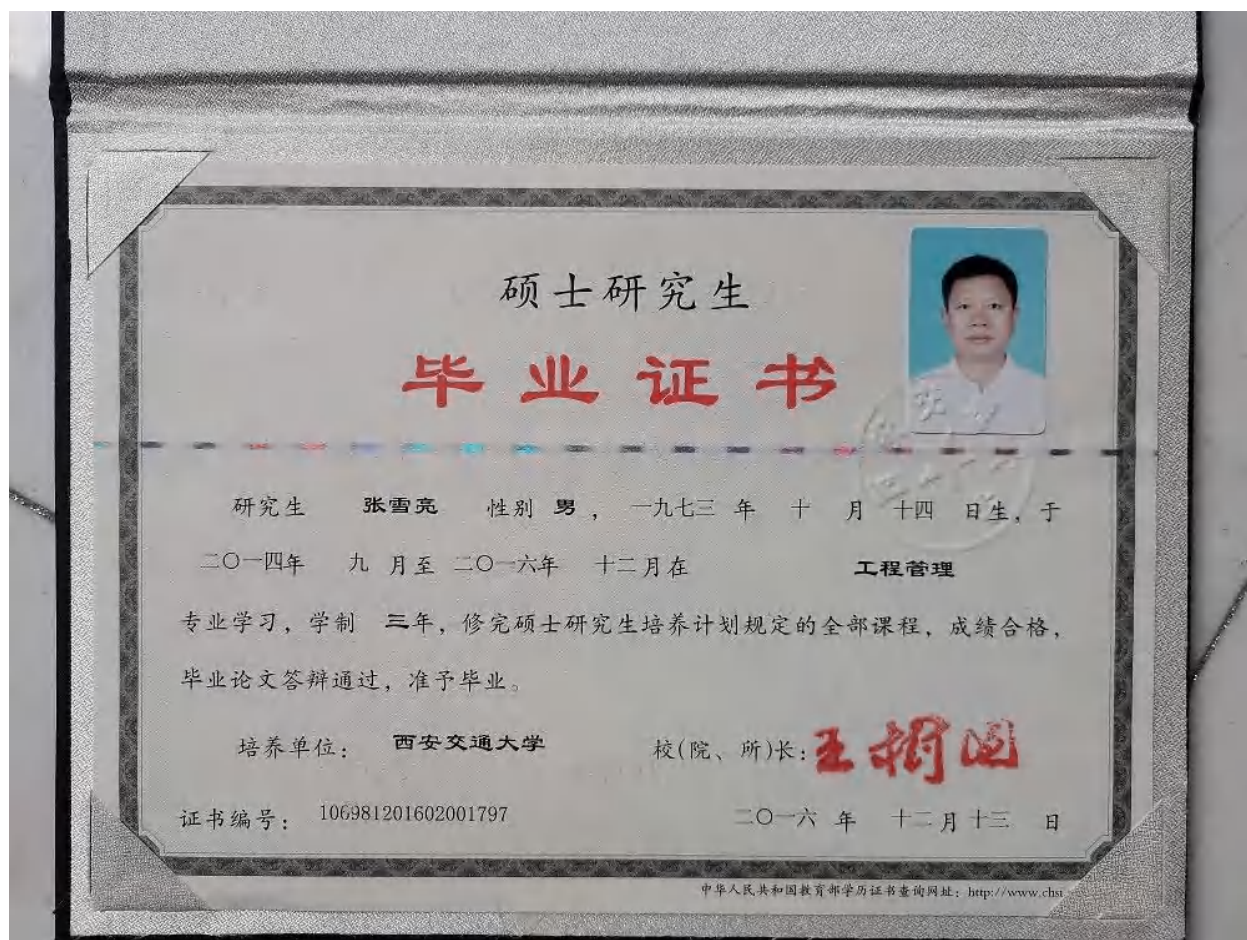 硕士研究生
毕业证书
研究生 张雪亮 性别 男, 一九七三 年 十 月 十四 日生, 于
二〇一四年 九 月至 二〇一六年 十二月在 工程管理
专业学习, 学制 三年, 修完硕士研究生培养计划规定的全部课程, 成绩合格,
毕业论文答辩通过, 准予毕业。
培养单位: 西安交通大学 校(院、所)长: 王树国
证书编号: 106981201602001797 二〇一六 年 十二月 十三 日
中华人民共和国教育部学历证书查询网址: http://www.chsi